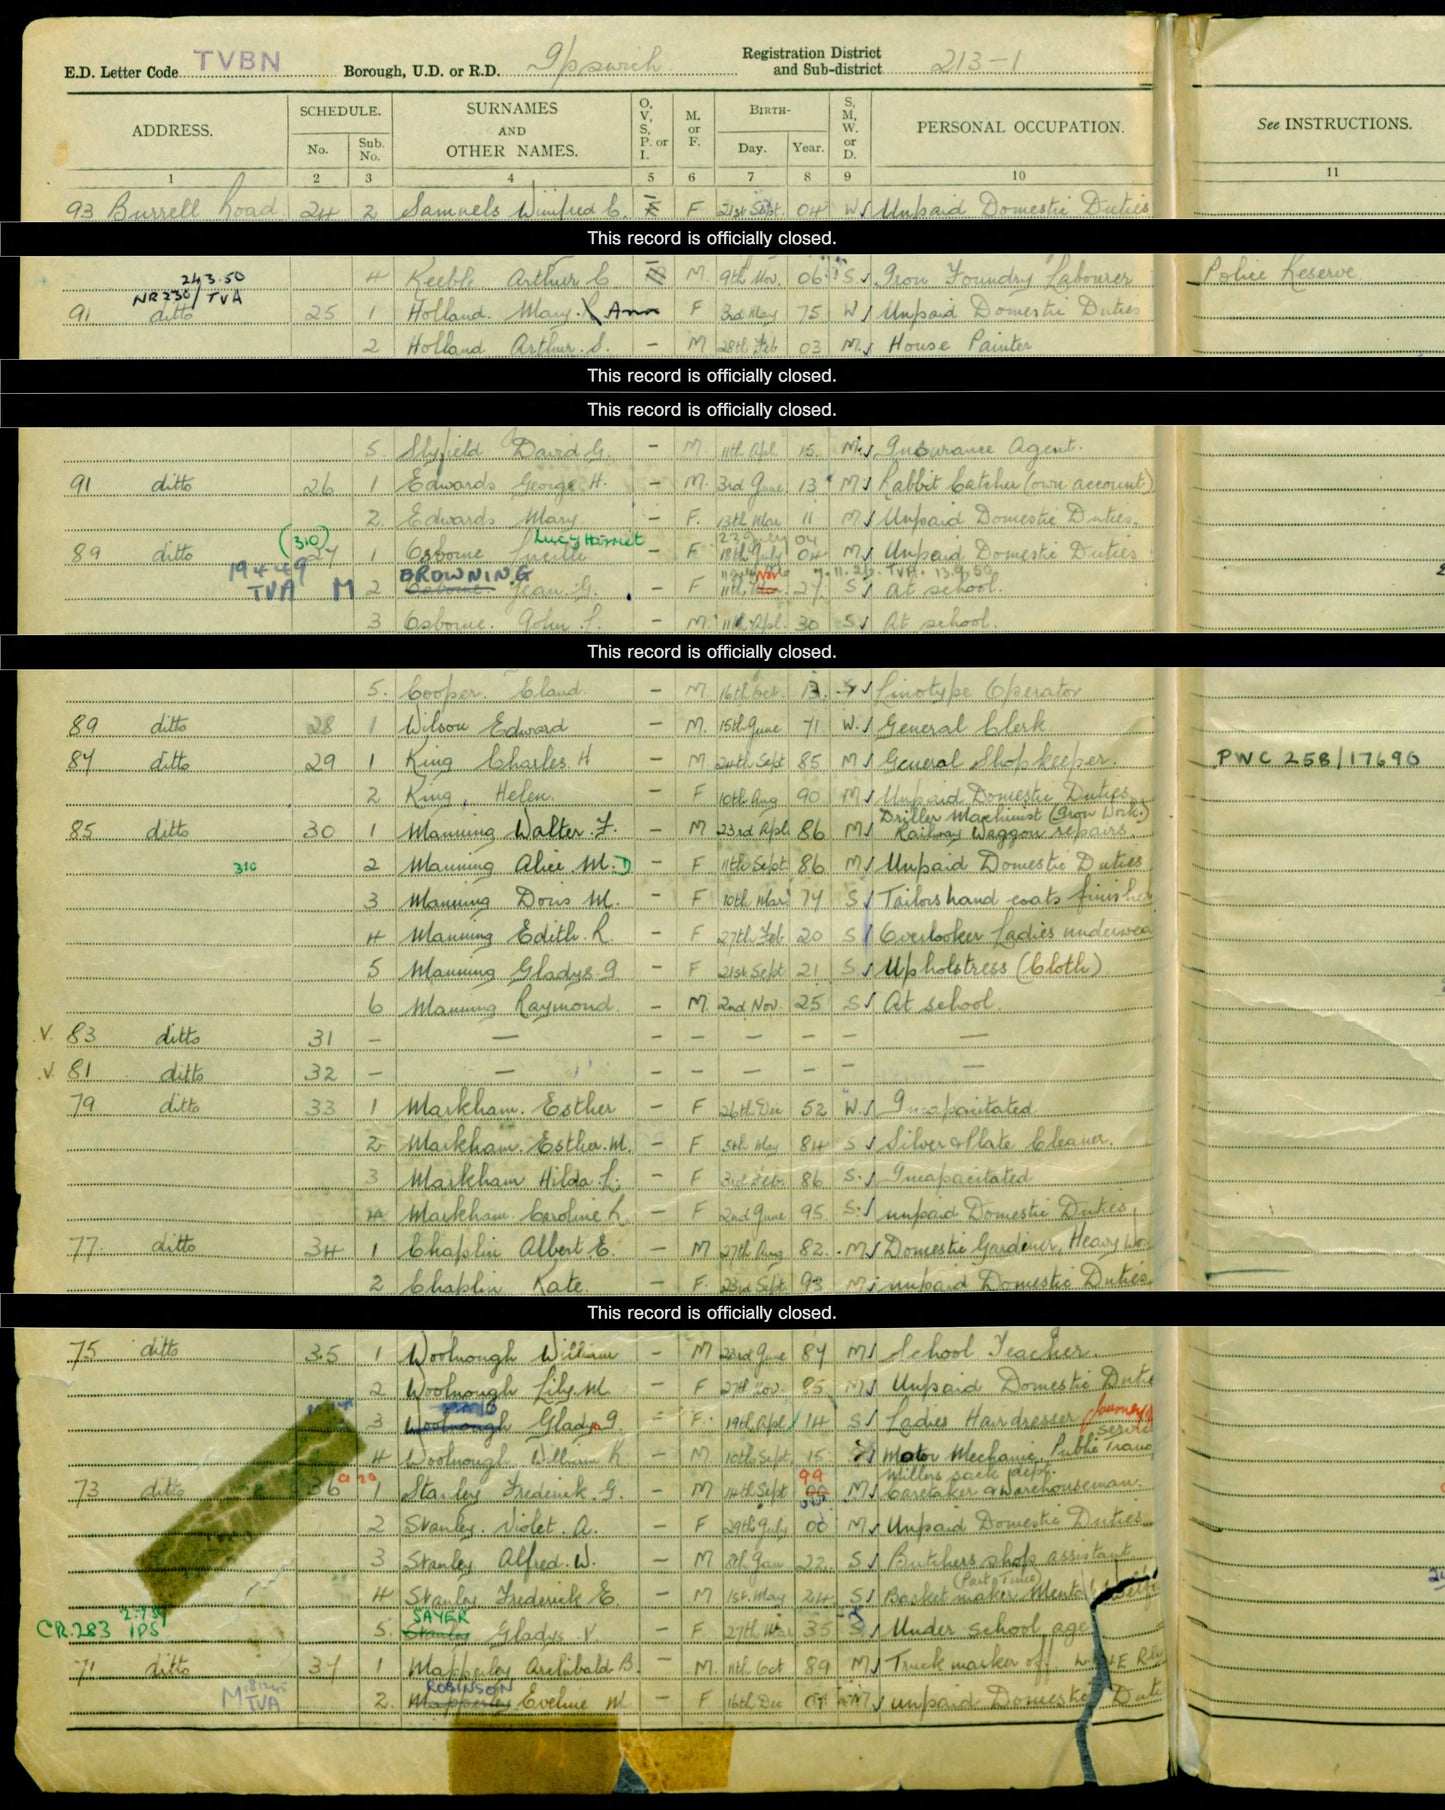 E.D. Letter Code TVBN Borough, U.D. or R.D. Ipswich Registration District and Sub-district 213-1
ADDRESS. SCHEDULE. No. Sub. No. SURNAMES AND OTHER NAMES. O, V, S, P. or I. M. or F. BIRTH- Day. Year. S, M, W. or D. PERSONAL OCCUPATION. See INSTRUCTIONS.
1 2 3 4 5 6 7 8 9 10 11
93 Burrell Road 24 2 Samuels Winifred C. F 21st Sept. 04 W Unpaid Domestic Duties
This record is officially closed.
4 Keeble Arthur C M. 9th Nov. 06 S Iron Foundry Labourer Police Reserve
243.50
NR230/TVA
91 ditto 25 1 Holland. Mary. Ann F 3rd May 75 W Unpaid Domestic Duties
2 Holland Arthur. S. – M 28th Feb 03 M. House Painter
This record is officially closed.
This record is officially closed.
5. David G. – M. 11th Apl. 15. M. Insurance Agent.
91 ditto 26 1 Edwards George. H. – M. 3rd June 13 M Rabbit Catcher (own account)
2. Edwards Mary. – F. 13th Mar 11 M Unpaid Domestic Duties.
(310) Lucy Harriet 23 July 04
89 ditto 27 1 Osborne Lucille – F 18th July 04 M Unpaid Domestic Duties
19449 BROWNING Nov 7.11.26. TVA. 13.9.50
TVA M 2 Osborne. Jean. G. – F 11th 27 S At school.
3 Osborne. John. S. – M. 11th Apl. 30 S At school.
This record is officially closed.
5. Cooper. Claud. – M. 16th Oct. 13. Linotype Operator
89 ditto 28 1 Wilson Edward – M. 15th June 71 W. General Clerk.
87 ditto 29 1 King Charles. H – M 24th Sept 85 M General Shopkeeper. PWC 25B/17690
2 King, Helen. – F 10th Aug 90 M Unpaid Domestic Duties.
Driller Machinist (Iron Work.)
85 ditto 30 1 Manning Walter. F. – M 23rd Apl. 86 M Railway Waggon repairs.
310 2 Manning Alice. M. D – F 11th Sept. 86 M Unpaid Domestic Duties
3 Manning Doris M. – F 10th Mar. 14 S Tailors hand coats finisher
4 Manning Edith. R – F 27th Feb 20 S Overlooker Ladies underwea
5 Manning Gladys. I – F 21st Sept 21 S Upholstress (Cloth)
6 Manning Raymond. – M. 2nd Nov. 25 S At school.
V. 83 ditto 31 – – – – – – – –
V. 81 ditto 32 – – – – – – – –
79 ditto 33 1 Markham. Esther – F 26th Dec 52 W. Incapacitated
2 Markham. Esther. M. – F 5th May 84 S Silver & Plate Cleaner.
3 Markham Hilda. L. – F 3rd Feb. 86 S. Incapacitated
4 Markham. Caroline R – F 2nd June 95. S. unpaid Domestic Duties.
77. ditto 34 1 Chaplin Albert E. – M 27th Aug 82. M Domestic Gardiner, Heavy Wo
2 Chaplin Kate. – F. 23rd Sept. 93 M unpaid Domestic Duties.
This record is officially closed.
75 ditto 35 1 Woolnough William – M 22rd June 87 M School Teacher.
2 Woolnough Lily. M. – F 27th Nov. 85 M Unpaid Domestic Duti
3 Woolnough Gladys I – F. 19th Apl 14 S Ladies Hairdresser
4 Woolnough William R – M. 10th Sept. 15 Motor Mechanic. Public Trans
99 Millers sack dept.
73 ditto 36 1 Stanley Frederick. G. – M 14th Sept M Caretaker & Warehouseman.
2 Stanley. Violet. A. – F 29th July 00 M Unpaid Domestic Duties
3 Stanley Alfred. W. – M 8th Jan 22. S Butchers shop assistant
(Part Time)
4 Stanley Frederick E. – M 1st. May 24 S Basket maker
SAYER
CR.283 IPS 5. Stanley Gladys V. – F. 27th Mar 35 S Under school age
71 ditto 37 1 Mapperley Archibald B. – M. 11th Oct 89 M Truck marker off
ROBINSON
M TVA 2. Mapperley Eveline M – F 16th Dec unpaid Domestic Duti